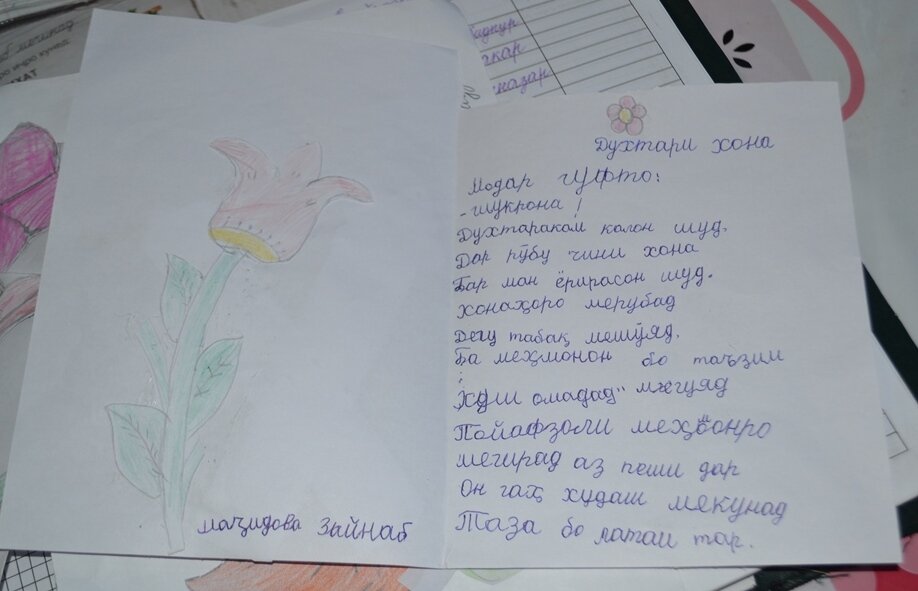 бадкур
назар
Духтари хона
Модар гуфто:
- шукрона!
Духтаракам калон шуд.
Дар рӯбу чини хона
Бар ман ёрирасон шуд.
хонаҳоро мерубад
Дегу табақ мешӯяд.
Ба меҳмонон бо таъзим
Хуш омадад" мегуяд
Пойафзоли меҳмонро
мегирад аз пеши дар
Он гаҳ худаш мекунад
Таза бо латаи тар.
маҷидова Зайнаб